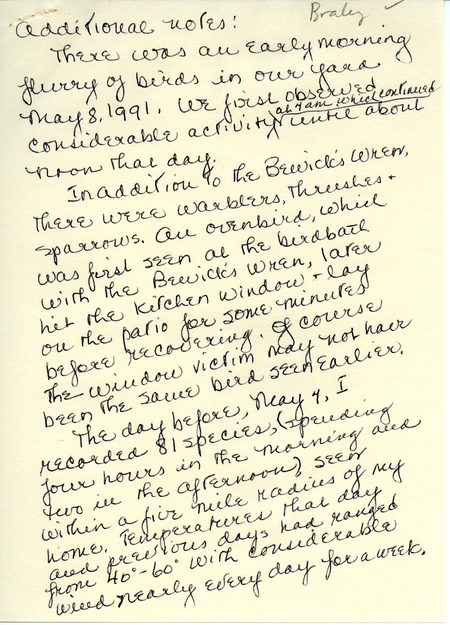 Braley ✓
Additional notes:
There was an early morning
flurry of birds in our yard
May 8, 1991. We first observed
at 7am, which continued
considerable activity until about
noon that day.
In addition to the Bewick's Wren,
there were warblers, thrushes +
sparrows. An ovenbird, which
was first seen at the birdbath
with the Bewick's Wren, later
hit the kitchen window + lay
on the patio for some minutes
before recovering. Of course
the window victim may not have
been the same bird seen earlier.
The day before, May 7, I
recorded 81 species, (spending
four hours in the morning and
two in the afternoon), seen
within a five mile radius of my
home. Temperatures that day
and previous days had ranged
from 40°-60° with considerable
wind nearly every day for a week.